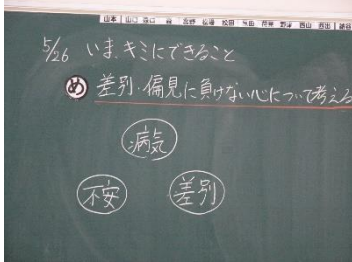 5/26 いま、キミにできること
め 差別・偏見に負けない心について考える
病気
不安 差別